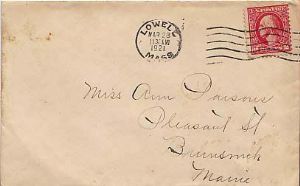 LOWELL
MAR 28
1130 AM
1921
MASS.
Miss Ann Parsons
Pleasant St.
Brunswick
Maine